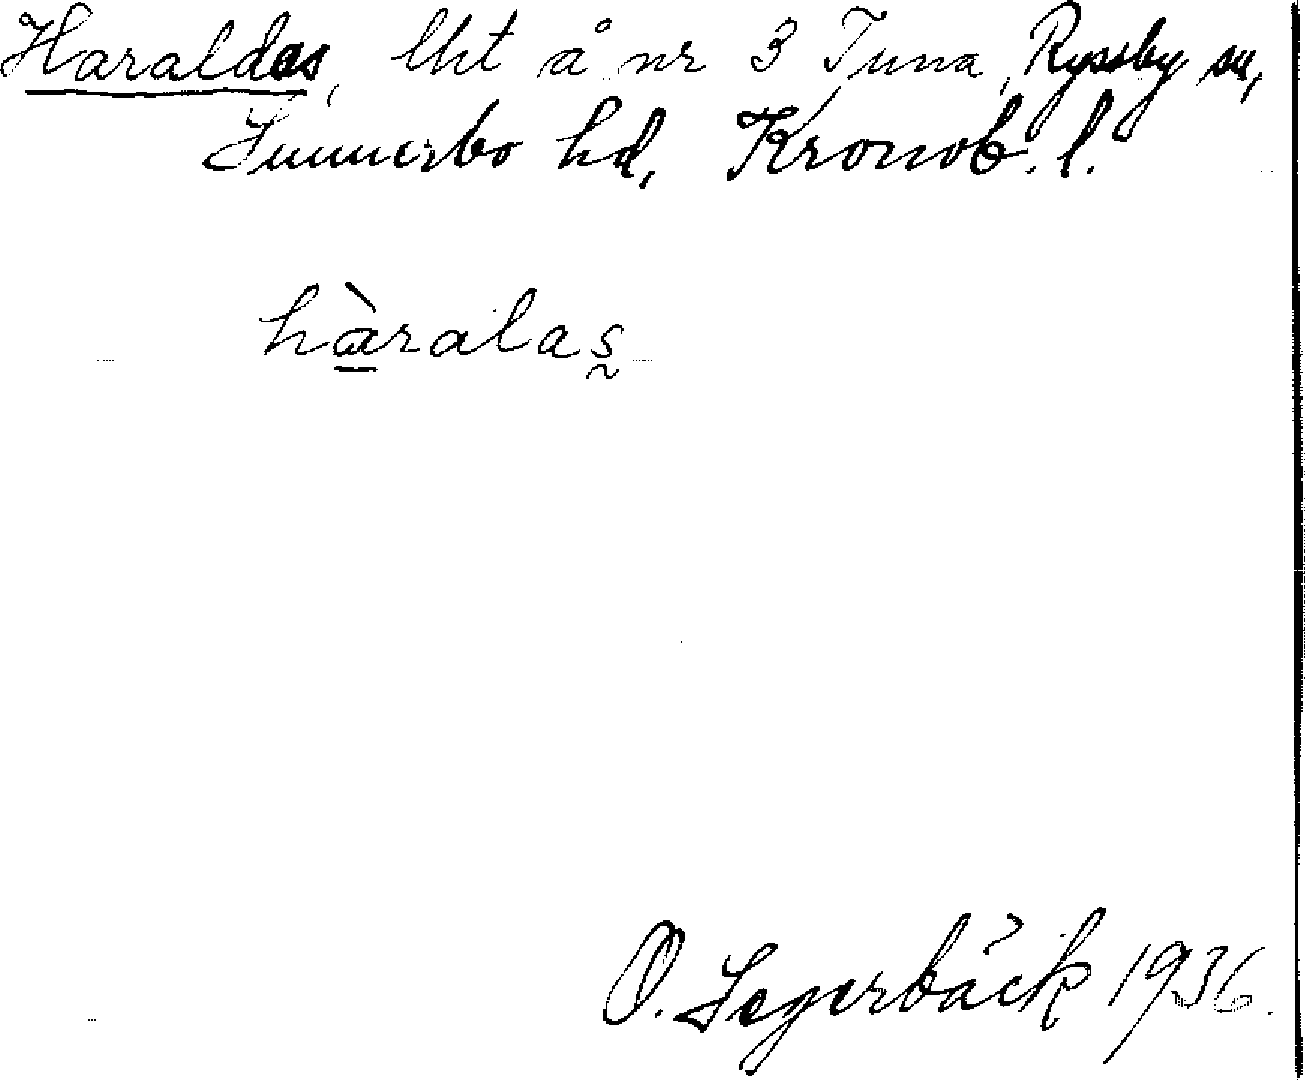 Haraldas, lht å nr 3 Tuna, Ryssby sn,
Sunnerbo hd, Kronob. l.
hàralas̰
O. Segerbäck 1936.